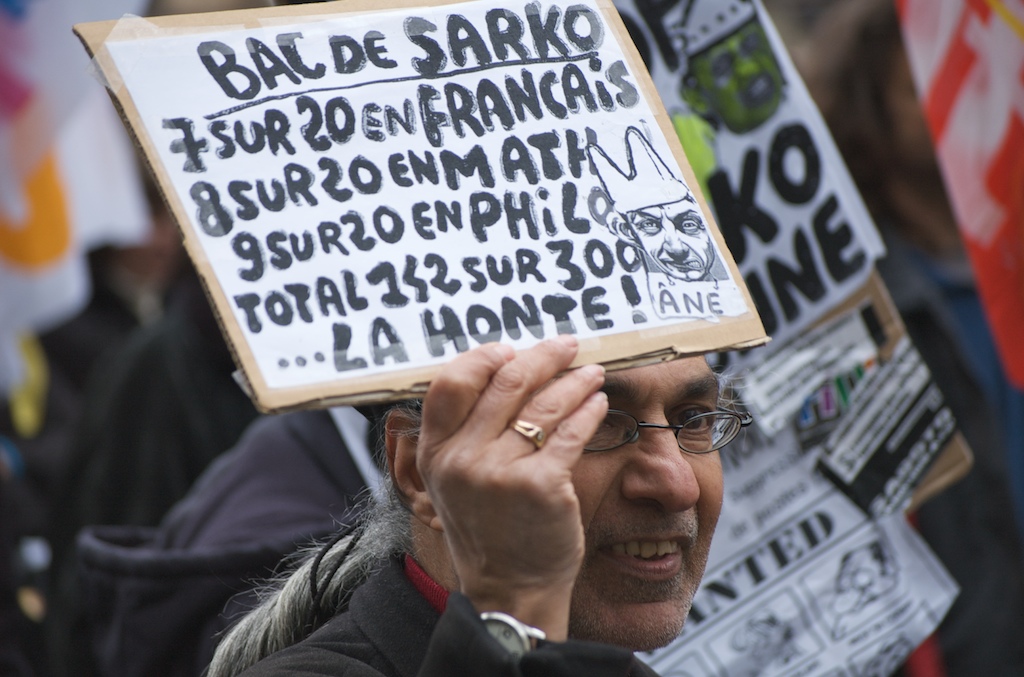 BAC DE SARKO
7 SUR 20 EN FRANÇAIS
8 SUR 20 EN MATH
9 SUR 20 EN PHILO
TOTAL 142 SUR 300
... LA HONTE !
ÂNE
KO
UNE
NTED